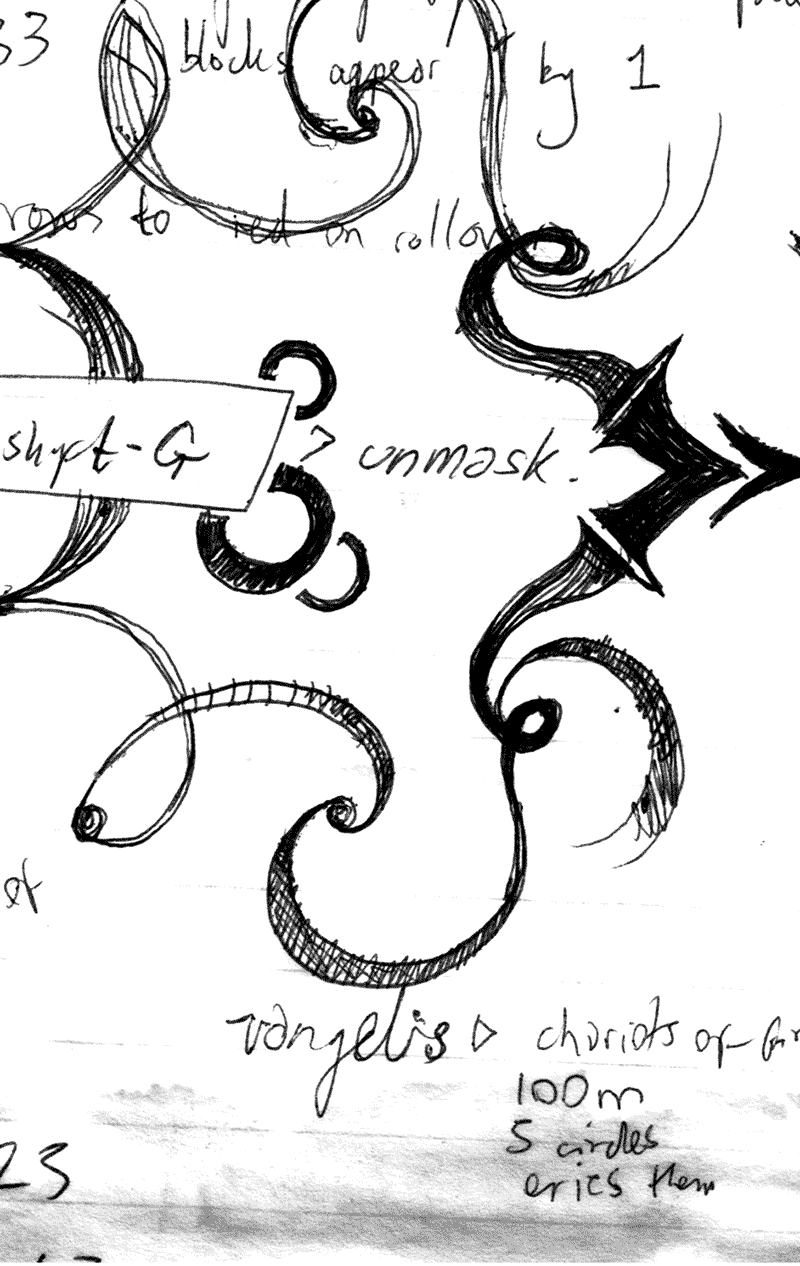 33 blocks appear by 1
rows to red on rollov
shyft-G > unmask.
of
vangelis ▷ chariots of fir
100m
5 circles
erics them
23